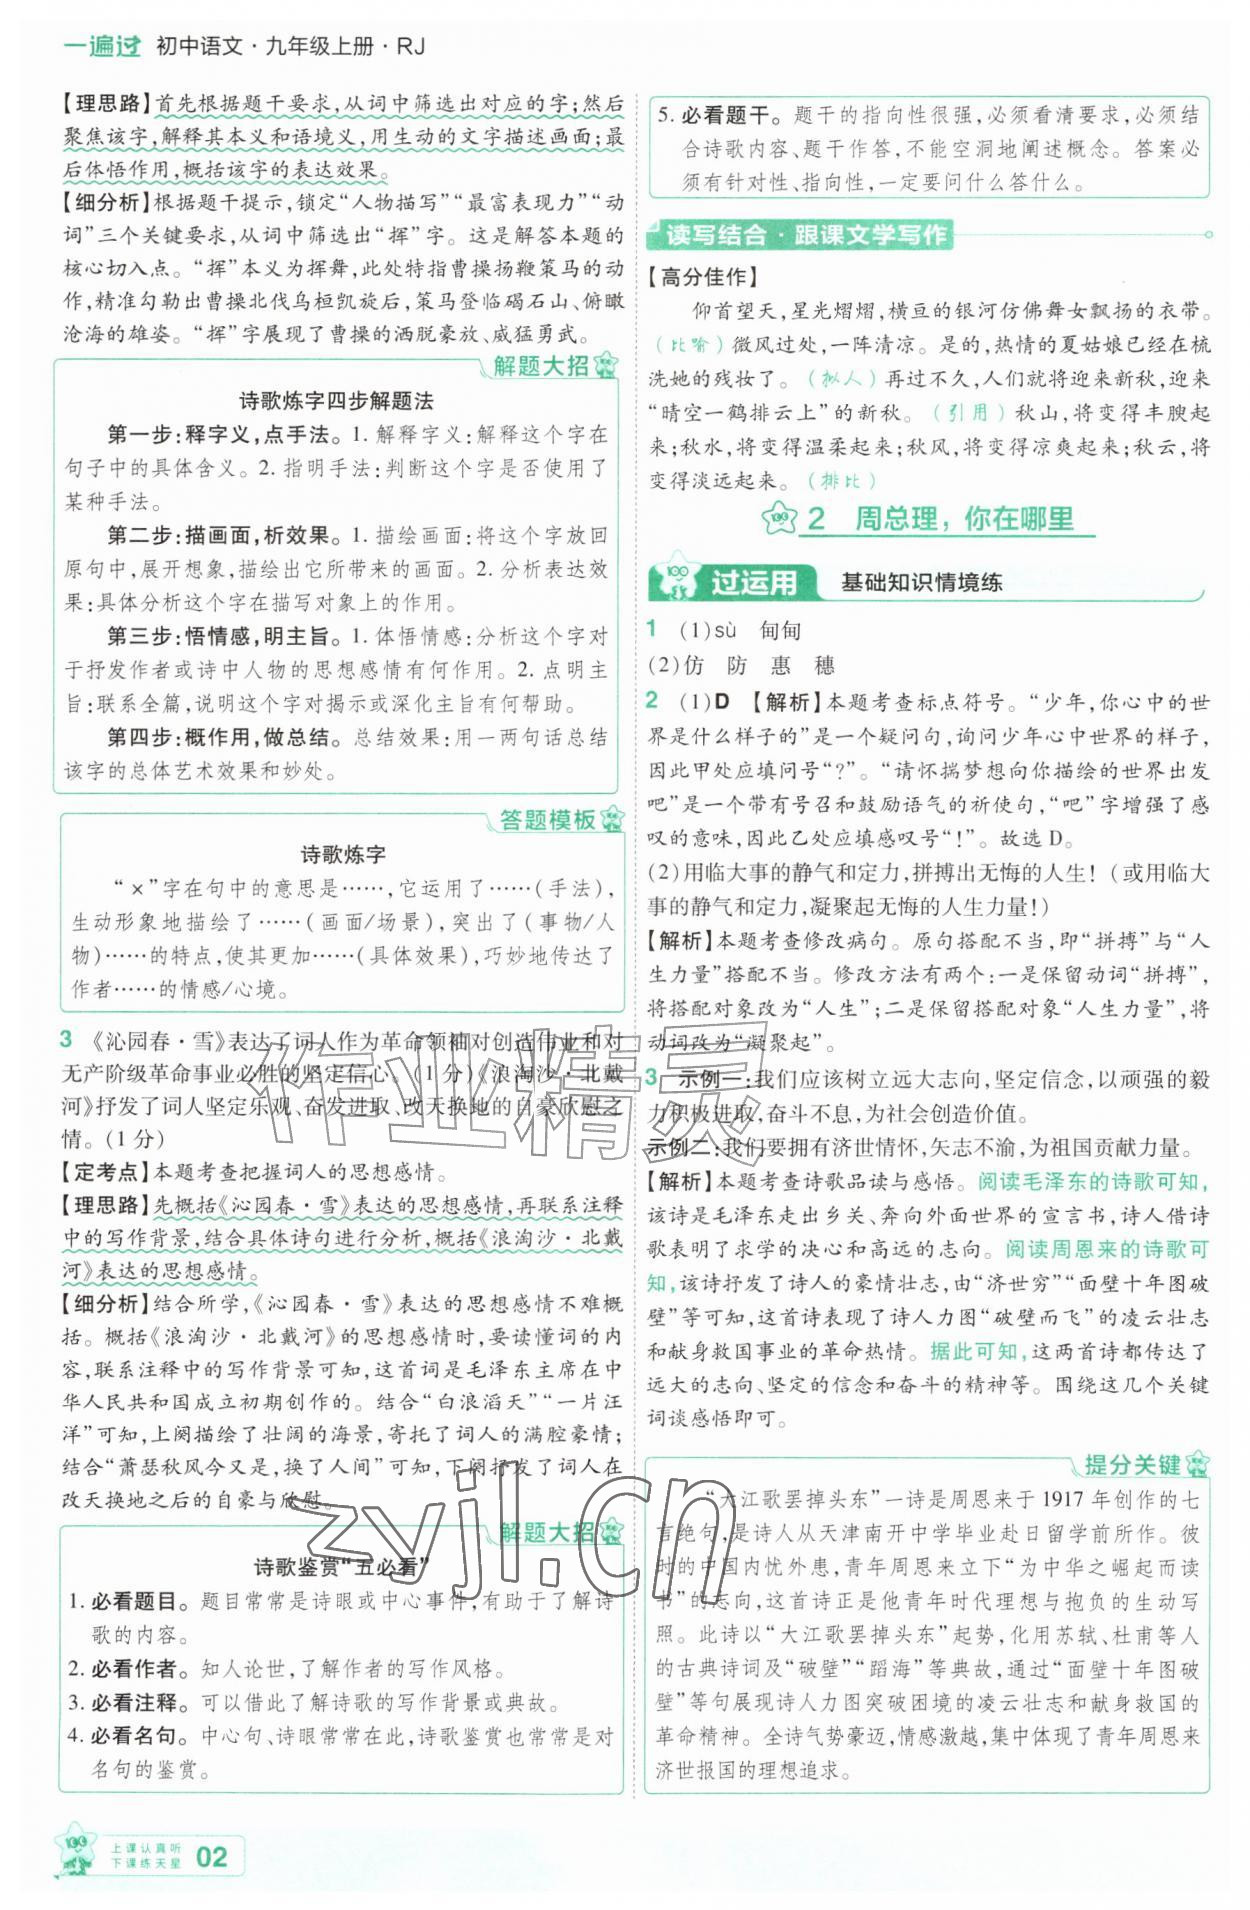 一遍过 初中语文·九年级上册·RJ
【理思路】首先根据题干要求,从词中筛选出对应的字;然后
聚焦该字,解释其本义和语境义,用生动的文字描述画面;最
后体悟作用,概括该字的表达效果。
【细分析】根据题干提示,锁定“人物描写”“最富表现力”“动
词”三个关键要求,从词中筛选出“挥”字。这是解答本题的
核心切入点。“挥”本义为挥舞,此处特指曹操扬鞭策马的动
作,精准勾勒出曹操北伐乌桓凯旋后,策马登临碣石山、俯瞰
沧海的雄姿。“挥”字展现了曹操的洒脱豪放、威猛勇武。
解题大招
诗歌炼字四步解题法
第一步:释字义,点手法。1. 解释字义:解释这个字在
句子中的具体含义。2. 指明手法:判断这个字是否使用了
某种手法。
第二步:描画面,析效果。1. 描绘画面:将这个字放回
原句中,展开想象,描绘出它所带来的画面。2. 分析表达效
果:具体分析这个字在描写对象上的作用。
第三步:悟情感,明主旨。1. 体悟情感:分析这个字对
于抒发作者或诗中人物的思想感情有何作用。2. 点明主
旨:联系全篇,说明这个字对揭示或深化主旨有何帮助。
第四步:概作用,做总结。总结效果:用一两句话总结
该字的总体艺术效果和妙处。
答题模板
诗歌炼字
“×”字在句中的意思是……,它运用了……(手法),
生动形象地描绘了……(画面/场景),突出了(事物/人
物)……的特点,使其更……(具体效果),巧妙地传达了
作者……的情感/心境。
3 《沁园春·雪》表达了词人作为革命领袖对创造伟业和对
无产阶级革命事业必胜的坚定信心。(1分)《浪淘沙·北戴
河》抒发了词人坚定乐观、奋发进取、改天换地的自豪欣慰之
情。(1分)
【定考点】本题考查把握词人的思想感情。
【理思路】先概括《沁园春·雪》表达的思想感情,再联系注释
中的写作背景,结合具体诗句进行分析,概括《浪淘沙·北戴
河》表达的思想感情。
【细分析】结合所学,《沁园春·雪》表达的思想感情不难概
括。概括《浪淘沙·北戴河》的思想感情时,要读懂词的内
容,联系注释中的写作背景可知,这首词是毛泽东主席在中
华人民共和国成立初期创作的。结合“白浪滔天”“一片汪
洋”可知,上阕描绘了壮阔的海景,寄托了词人的满腔豪情;
结合“萧瑟秋风今又是,换了人间”可知,下阕抒发了词人在
改天换地之后的自豪与欣慰。
解题大招
诗歌鉴赏“五必看”
1. 必看题目。题目常常是诗眼或中心事件,有助于了解诗
歌的内容。
2. 必看作者。知人论世,了解作者的写作风格。
3. 必看注释。可以借此了解诗歌的写作背景或典故。
4. 必看名句。中心句、诗眼常常在此,诗歌鉴赏也常常是对
名句的鉴赏。
上课认真听
下课练天星
02
5. 必看题干。题干的指向性很强,必须看清要求,必须结
合诗歌内容、题干作答,不能空洞地阐述概念。答案必
须有针对性、指向性,一定要问什么答什么。
读写结合·跟课文学写作
【高分佳作】
仰首望天,星光熠熠,横亘的银河仿佛舞女飘扬的衣带。
(比喻)微风过处,一阵清凉。是的,热情的夏姑娘已经在梳
洗她的残妆了。(拟人)再过不久,人们就将迎来新秋,迎来
“晴空一鹤排云上”的新秋。(引用)秋山,将变得丰腴起
来;秋水,将变得温柔起来;秋风,将变得凉爽起来;秋云,将
变得淡远起来。(排比)
2 周总理,你在哪里
过运用 基础知识情境练
1 (1)sù 甸甸
(2)仿 防 惠 穗
2 (1)D 【解析】本题考查标点符号。“少年,你心中的世
界是什么样子的”是一个疑问句,询问少年心中世界的样子,
因此甲处应填问号“?”。“请怀揣梦想向你描绘的世界出发
吧”是一个带有号召和鼓励语气的祈使句,“吧”字增强了感
叹的意味,因此乙处应填感叹号“!”。故选D。
(2)用临大事的静气和定力,拼搏出无悔的人生!(或用临大
事的静气和定力,凝聚起无悔的人生力量!)
【解析】本题考查修改病句。原句搭配不当,即“拼搏”与“人
生力量”搭配不当。修改方法有两个:一是保留动词“拼搏”,
将搭配对象改为“人生”;二是保留搭配对象“人生力量”,将
动词改为“凝聚起”。
3 示例一:我们应该树立远大志向,坚定信念,以顽强的毅
力积极进取,奋斗不息,为社会创造价值。
示例二:我们要拥有济世情怀,矢志不渝,为祖国贡献力量。
【解析】本题考查诗歌品读与感悟。阅读毛泽东的诗歌可知,
该诗是毛泽东走出乡关、奔向外面世界的宣言书,诗人借诗
歌表明了求学的决心和高远的志向。阅读周恩来的诗歌可
知,该诗抒发了诗人的豪情壮志,由“济世穷”“面壁十年图破
壁”等可知,这首诗表现了诗人力图“破壁而飞”的凌云壮志
和献身救国事业的革命热情。据此可知,这两首诗都传达了
远大的志向、坚定的信念和奋斗的精神等。围绕这几个关键
词谈感悟即可。
提分关键
“大江歌罢掉头东”一诗是周恩来于1917年创作的七
言绝句,是诗人从天津南开中学毕业赴日留学前所作。彼
时的中国内忧外患,青年周恩来立下“为中华之崛起而读
书”的志向,这首诗正是他青年时代理想与抱负的生动写
照。此诗以“大江歌罢掉头东”起势,化用苏轼、杜甫等人
的古典诗词及“破壁”“蹈海”等典故,通过“面壁十年图破
壁”等句展现诗人力图突破困境的凌云壮志和献身救国的
革命精神。全诗气势豪迈,情感激越,集中体现了青年周恩来
济世报国的理想追求。
作业精灵
zyjl.cn